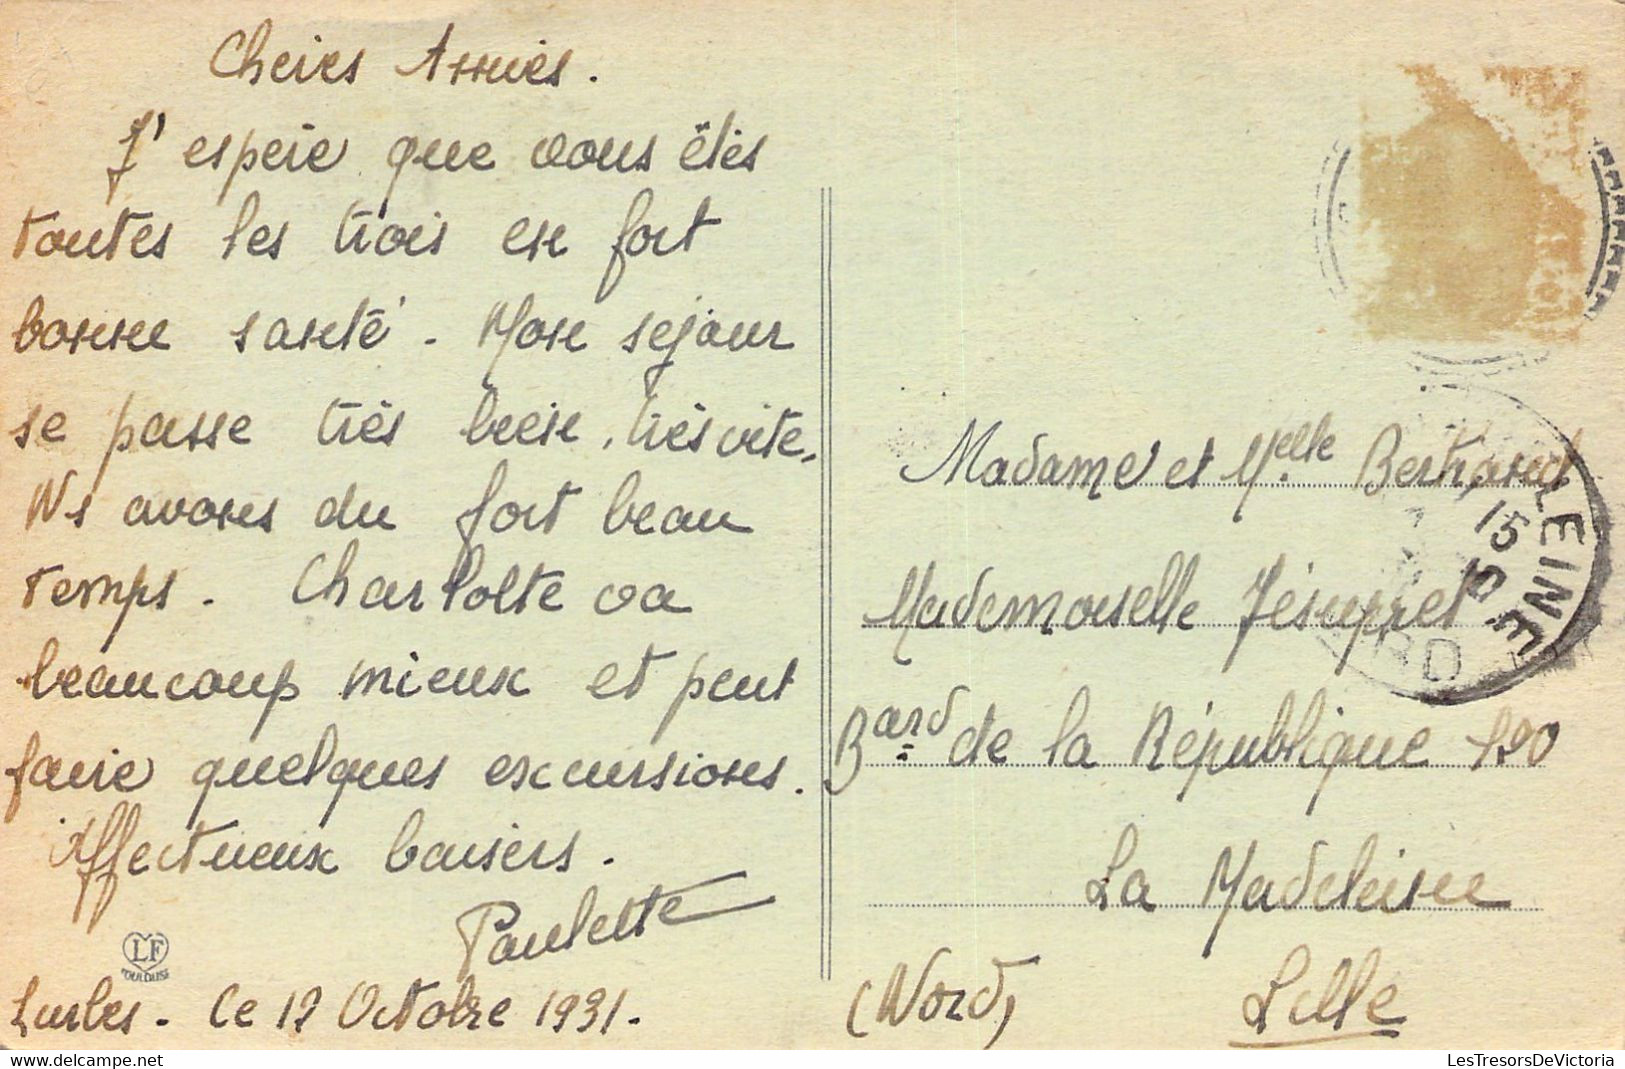 Chères Amies.
J'espère que vous êtes
toutes les trois en fort
bonne santé. Mon séjour
se passe très bien, très vite,
Ns avons du fort beau
temps. Charlotte va
beaucoup mieux et peut
faire quelques excursions.
Affectueux baisers.
Paulette
LF
TOULOUSE
Lurbes. le 12 Octobre 1931.
Madame et Melle Bertrand
Mademoiselle Jésupret
Bard de la République 120
La Madeleine
(Nord)
Lille
LEINE
15
LesTresorsDeVictoria
LesTresorsDeVictoria.com